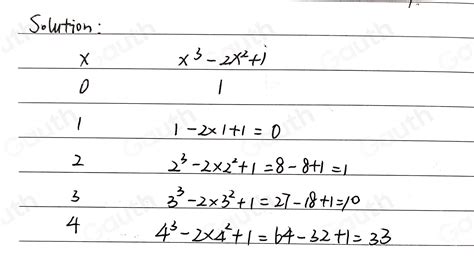 Solution:
x x³-2x²+1
0 1
1 1-2×1+1=0
2 2³-2×2²+1=8-8+1=1
3 3³-2×3²+1=27-18+1=10
4 4³-2×4²+1=64-32+1=33